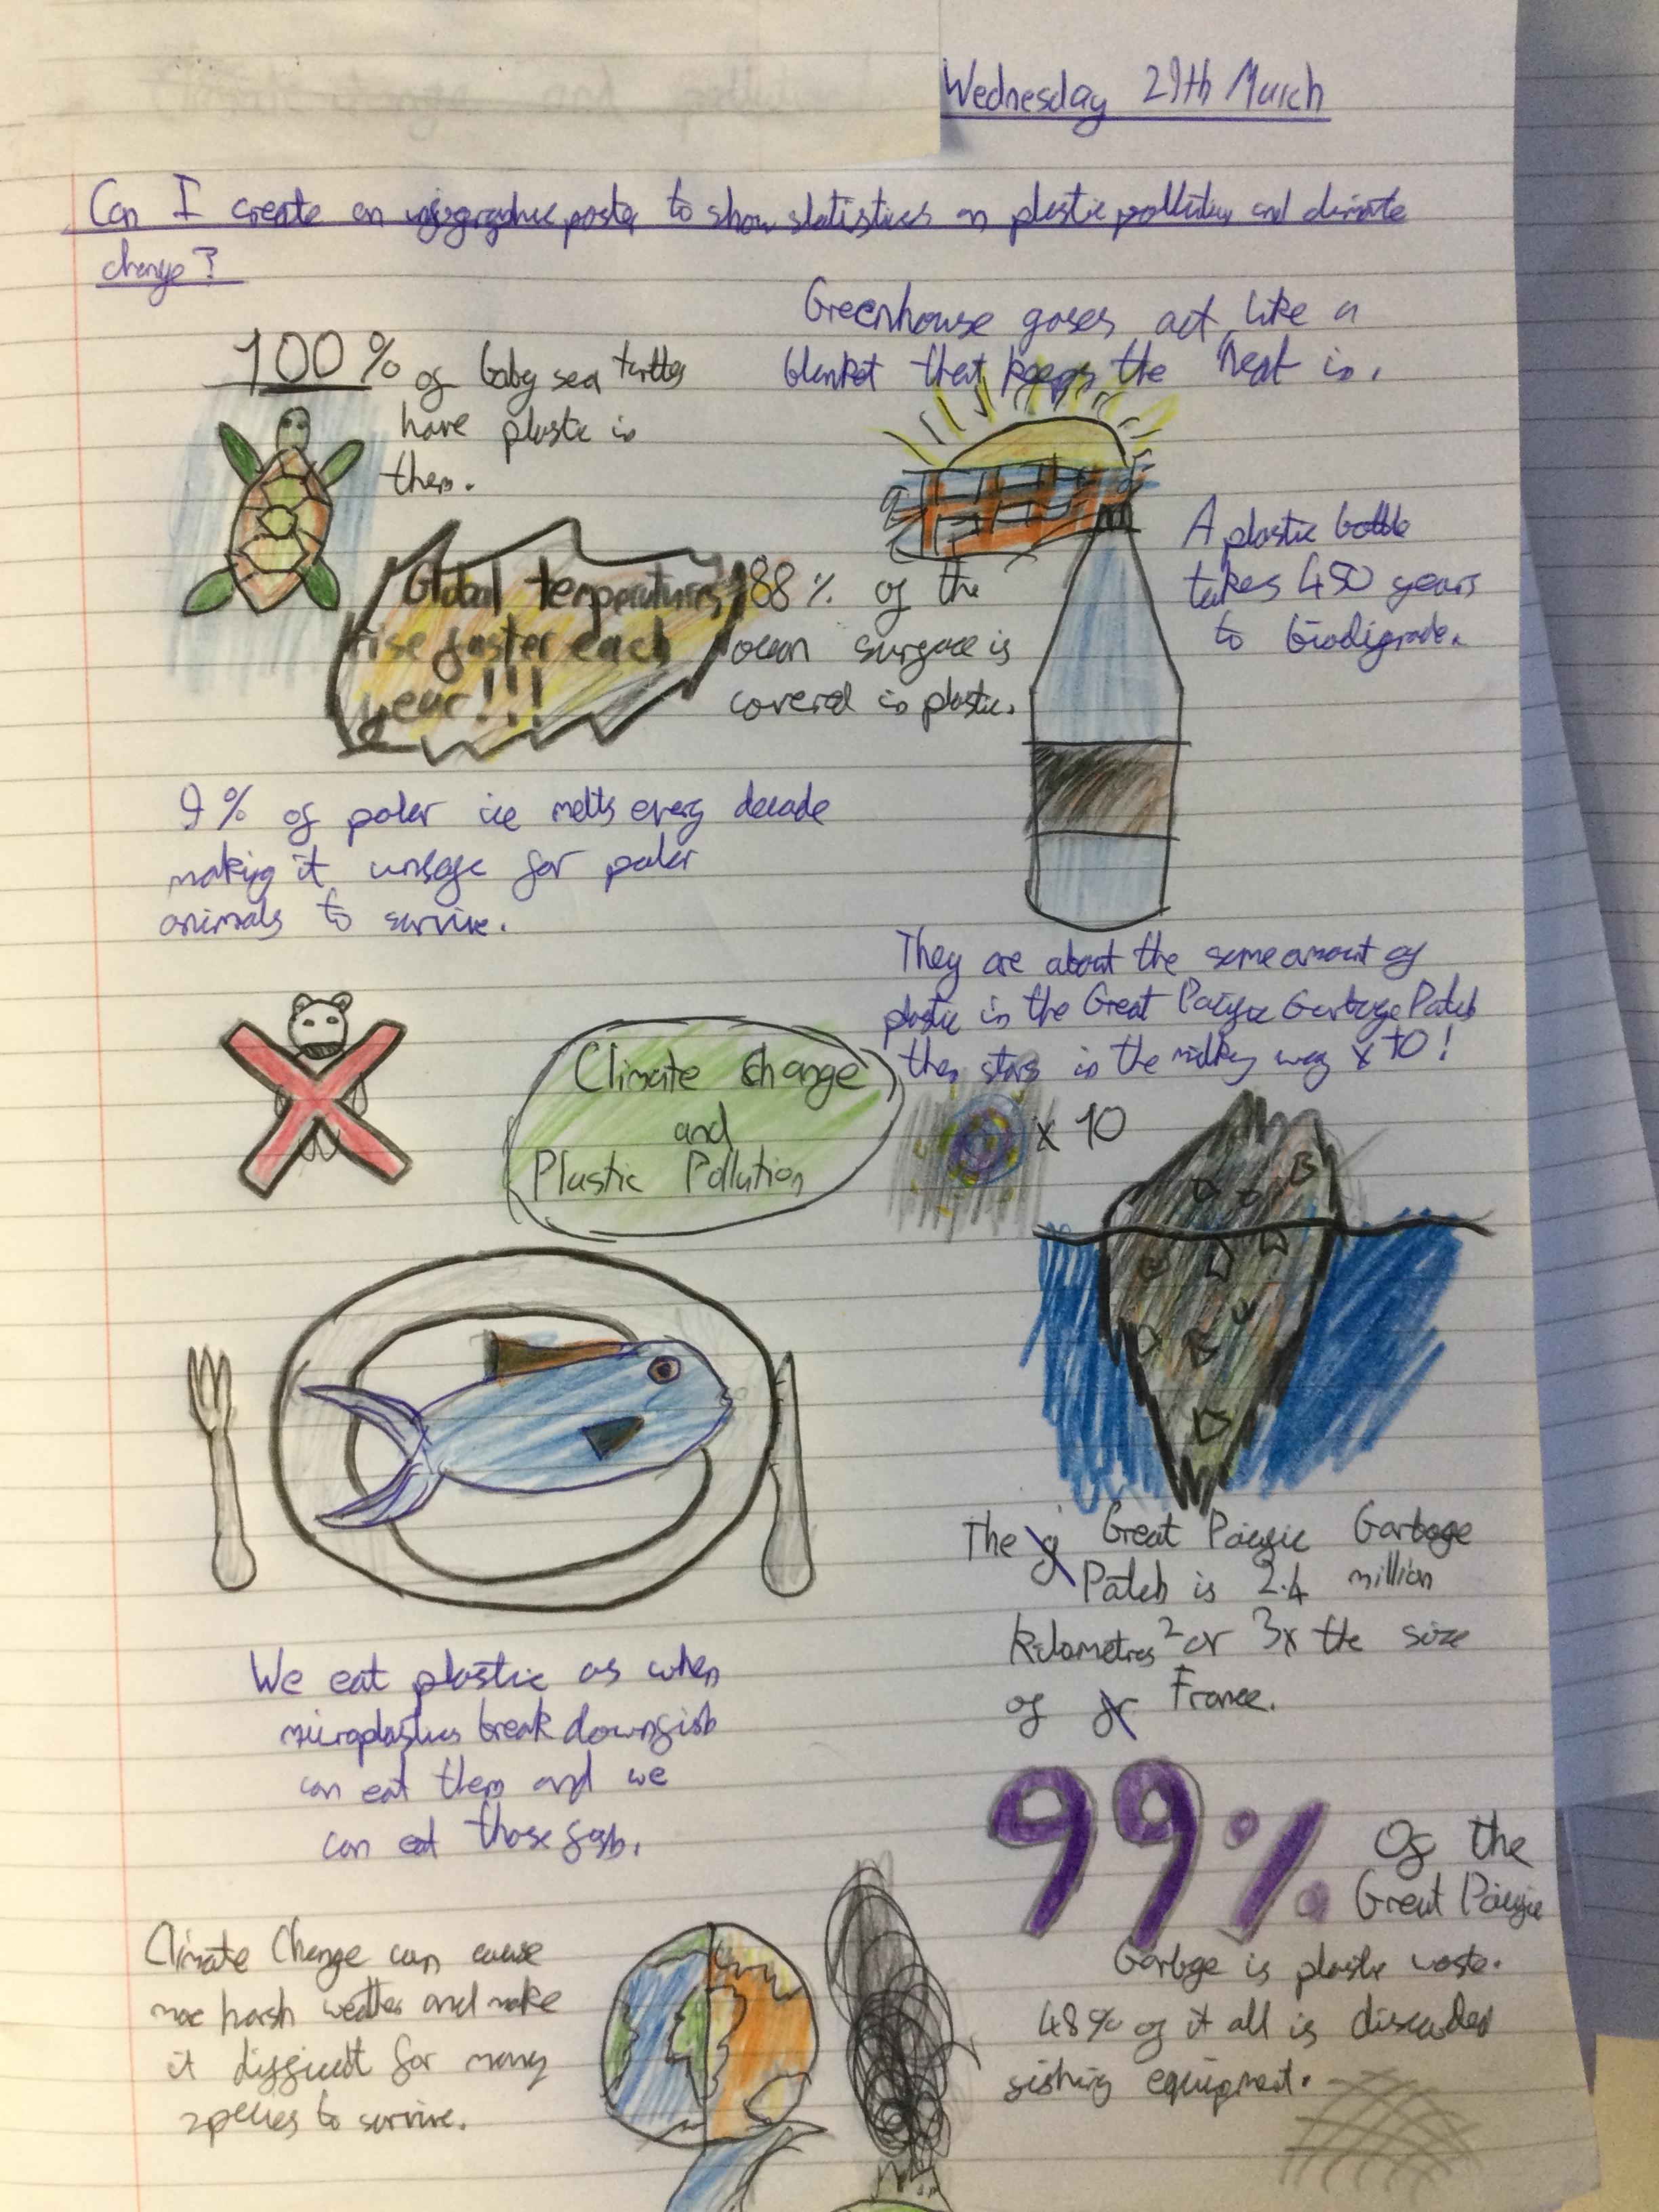 Wednesday 29th March
Can I create an infographic poster to show statistics on plastic pollution and climate
change?
100% of baby sea turtles
have plastic in
them.
Greenhouse gases act like a
blanket that keeps the heat in.
Global temperatures
rise faster each
year!!!
88% of the
ocean surface is
covered in plastic.
A plastic bottle
takes 450 years
to biodigrade.
9% of polar ice melts every decade
making it unsafe for polar
animals to survive.
They are about the same amount of
plastic in the Great Pacific Garbage Patch
then stars in the milky way x 10!
x 10
Climate Change
and
Plastic Pollution
The Great Pacific Garbage
Patch is 2.4 million
kilometres² or 3x the size
of France.
We eat plastic as when
microplastics break down fish
can eat them and we
can eat those fish.
99% Of the
Great Pacific
Garbge is plastic waste.
48% of it all is discarded
fishing equipment.
Climate Change can cause
more harsh weather and make
it difficult for many
species to survive.